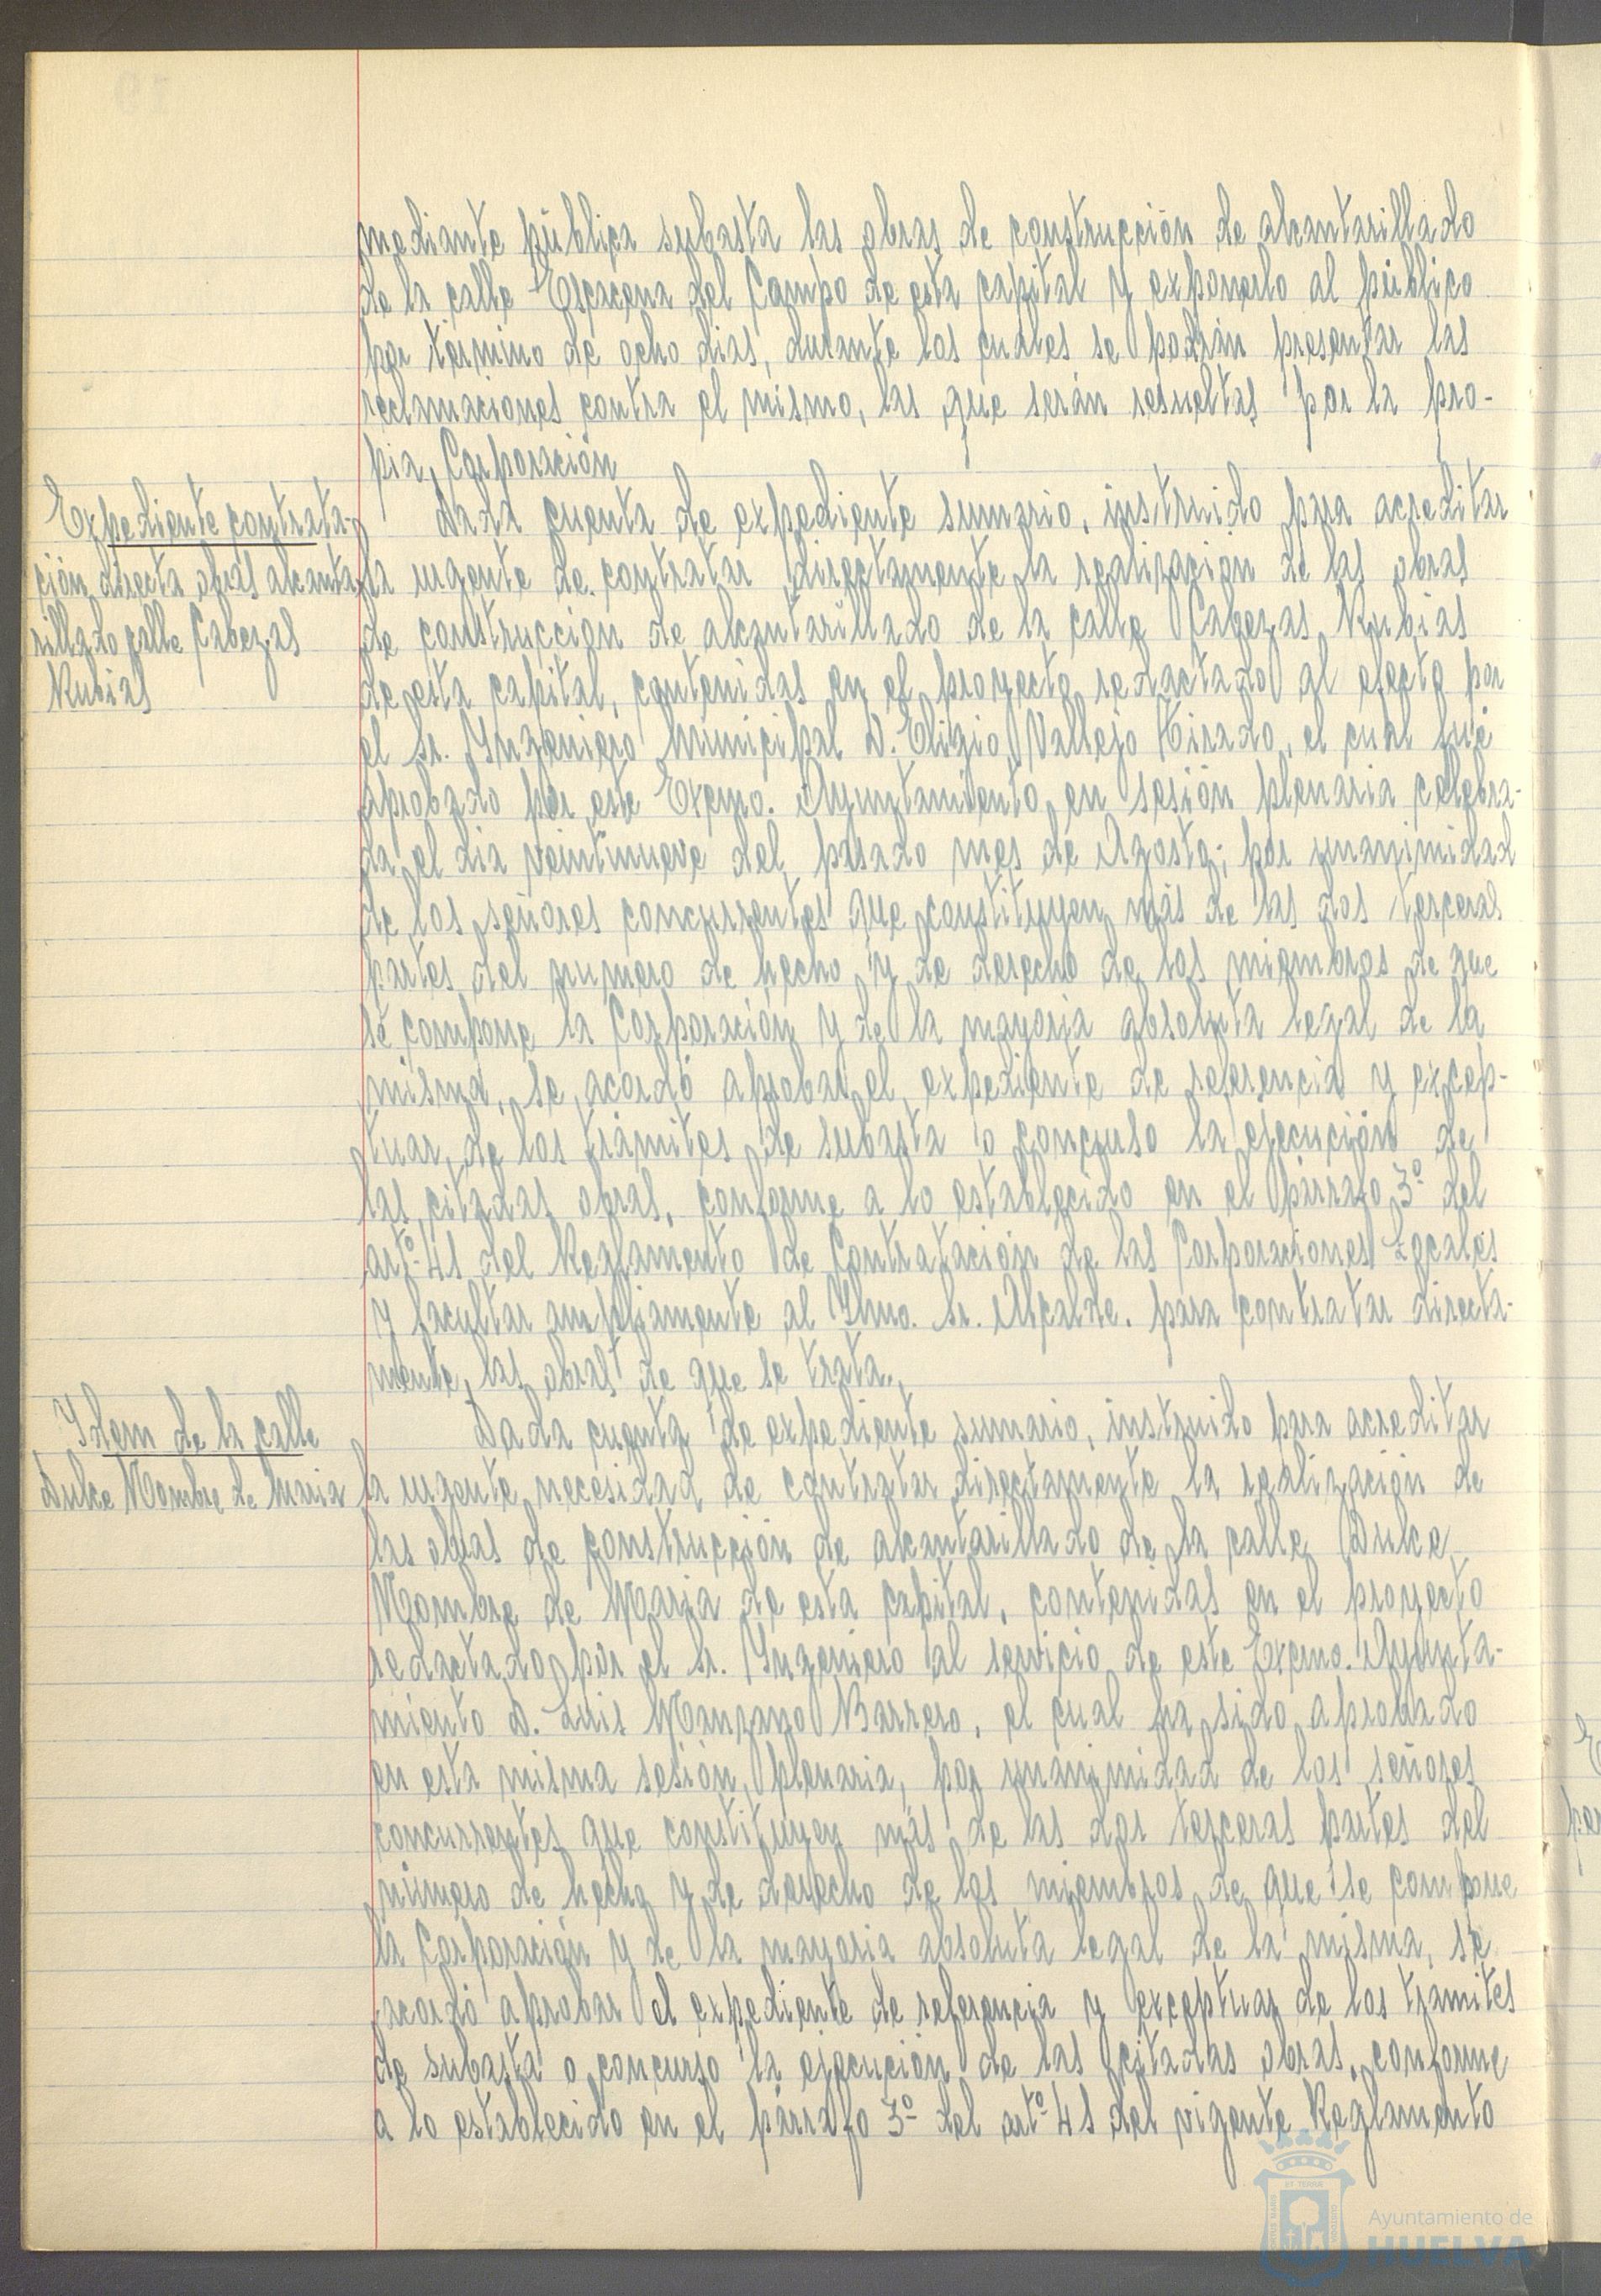 mediante pública subasta las obras de construcción de alcantarillado
de la calle Escacena del Campo de esta capital y exponerlo al público
por término de ocho dias, durante los cuales se podrán presentar las
reclamaciones contra el mismo, las que serán resueltas por la pro-
pia, Corporación
Expediente contrata-
ción directa obras alcanta
rillado calle Cabezas
Rubias
Dada cuenta de expediente sumario, instruido para acreditar
la urgente de contratar directamente la realización de las obras
de construcción de alcantarillado de la calle Cabezas Rubias
de esta capital, contenidas en el proyecto redactado al efecto por
el Sr. Ingeniero Municipal D. Eligio Vallejo Tirado, el cual fué
aprobado por este Excmo. Ayuntamiento, en sesión plenaria celebra-
da el dia veintinueve del pasado mes de Agosto; por unanimidad
de los señores concurrentes que constituyen más de las dos terceras
partes del numero de hecho y de derecho de los miembros de que
se compone la Corporación y de la mayoria absoluta legal de la
misma, se acordó aprobar el expediente de referencia y excep-
tuar, de los trámites de subasta o concurso la ejecución de
las citadas obras, conforme a lo establecido en el párrafo 3º del
artº 41 del Reglamento de Contratación de las Corporaciones Locales
y facultar ampliamente al Ilmo. Sr. Alcalde. para contratar directa-
mente, las obras de que se trata.
Idem de la calle
Dulce Nombre de Maria
Dada cuenta de expediente sumario, instruido para acreditar
la urgente necesidad de contratar directamente la realización de
las obras de construcción de alcantarillado de la calle Dulce
Nombre de Maria de esta capital, contenidas en el proyecto
redactado por el Sr. Ingeniero al servicio de este Excmo. Ayunta-
miento D. Luis Manzano Barrero, el cual ha sido aprobado
en esta misma sesión, plenaria, por unanimidad de los señores
concurrentes que constituyen más de las dos terceras partes del
número de hecho y de derecho de los miembros de que se compone
la Corporación y de la mayoria absoluta legal de la misma, se
acordó aprobar el expediente de referencia y exceptuar de los tramites
de subasta o concurso la ejecución de las citadas obras, conforme
a lo establecido en el párrafo 3º del artº 41 del vigente Reglamento
Ayuntamiento de
HUELVA